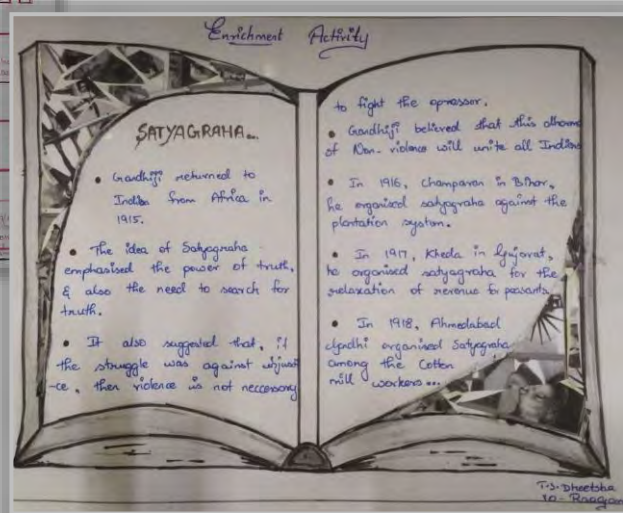 Enrichment Activity
SATYAGRAHA...
• Gandhiji returned to
India from Africa in
1915.
• The idea of Satyagraha
emphasised the power of truth,
& also the need to search for
truth.
• It also suggested that, if
the struggle was against unjust
-ce, then violence is not neccessary
to fight the opressor.
• Gandhiji believed that this dharma
of Non-violence will unite all Indians
• In 1916, Champaran in Bihar,
he organised satyagraha against the
plantation system.
• In 1917, Kheda in Gujarat,
he organised satyagraha for the
relaxation of revenue for peasants
• In 1918, Ahmedabad
Gandhi organised Satyagraha
among the Cotton
mill workers...
T.S. Dheetsha
10-